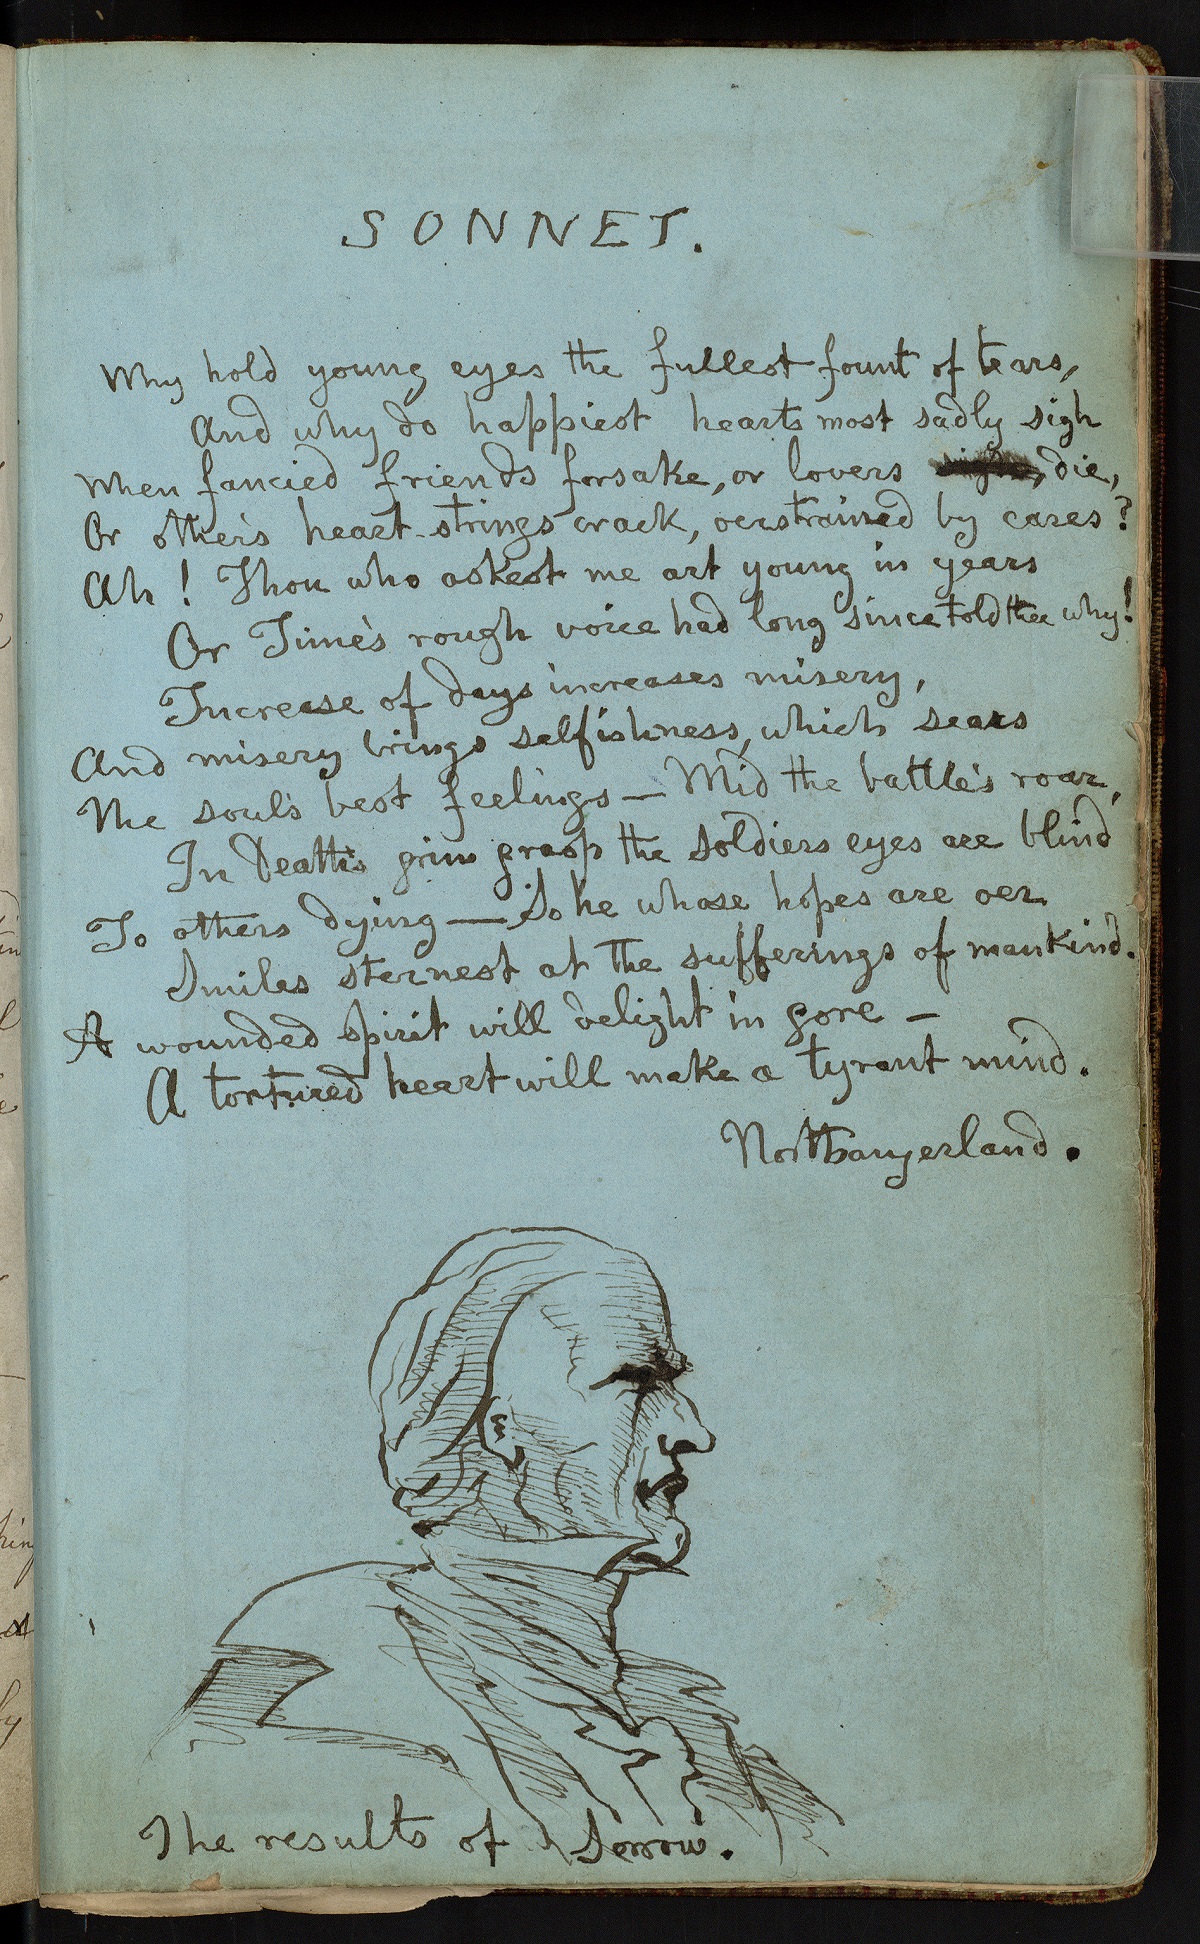 SONNET.
Why hold young eyes the fullest fount of tears,
And why do happiest hearts most sadly sigh
When fancied friends forsake, or lovers die,
Or other's heart-strings crack, oerstrained by cares?
Ah! Thou who askest me art young in years
Or Time's rough voice had long since told thee why!
Increase of days increases misery,
And misery brings selfishness, which sears
The soul's best feelings — Mid the battle's roar,
In Death's grim grasp the Soldiers eyes are blind
To others dying — So he whose hopes are oer
Smiles sternest at the sufferings of mankind.
A wounded spirit will delight in gore —
A tortured heart will make a tyrant mind.
Northangerland.
The results of Sorrow.